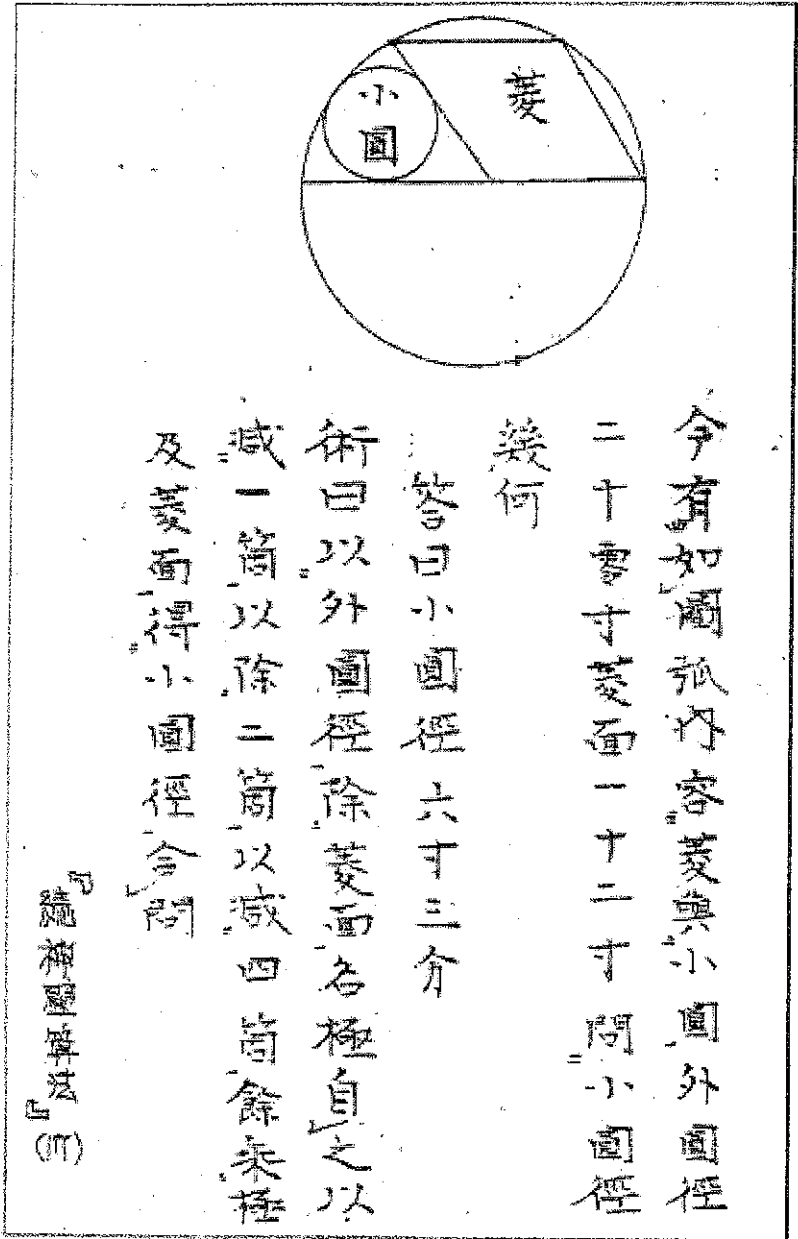 菱
小
圓
今有如圖弧内容菱與小圓外圓徑
二十零寸菱面一十二寸問小圓徑
幾何
答曰小圓徑六寸三分
術曰以外圓徑除菱面名極自之以
減一箇以除二箇以減四箇餘乘極
及菱面得小圓徑合問
『算法』